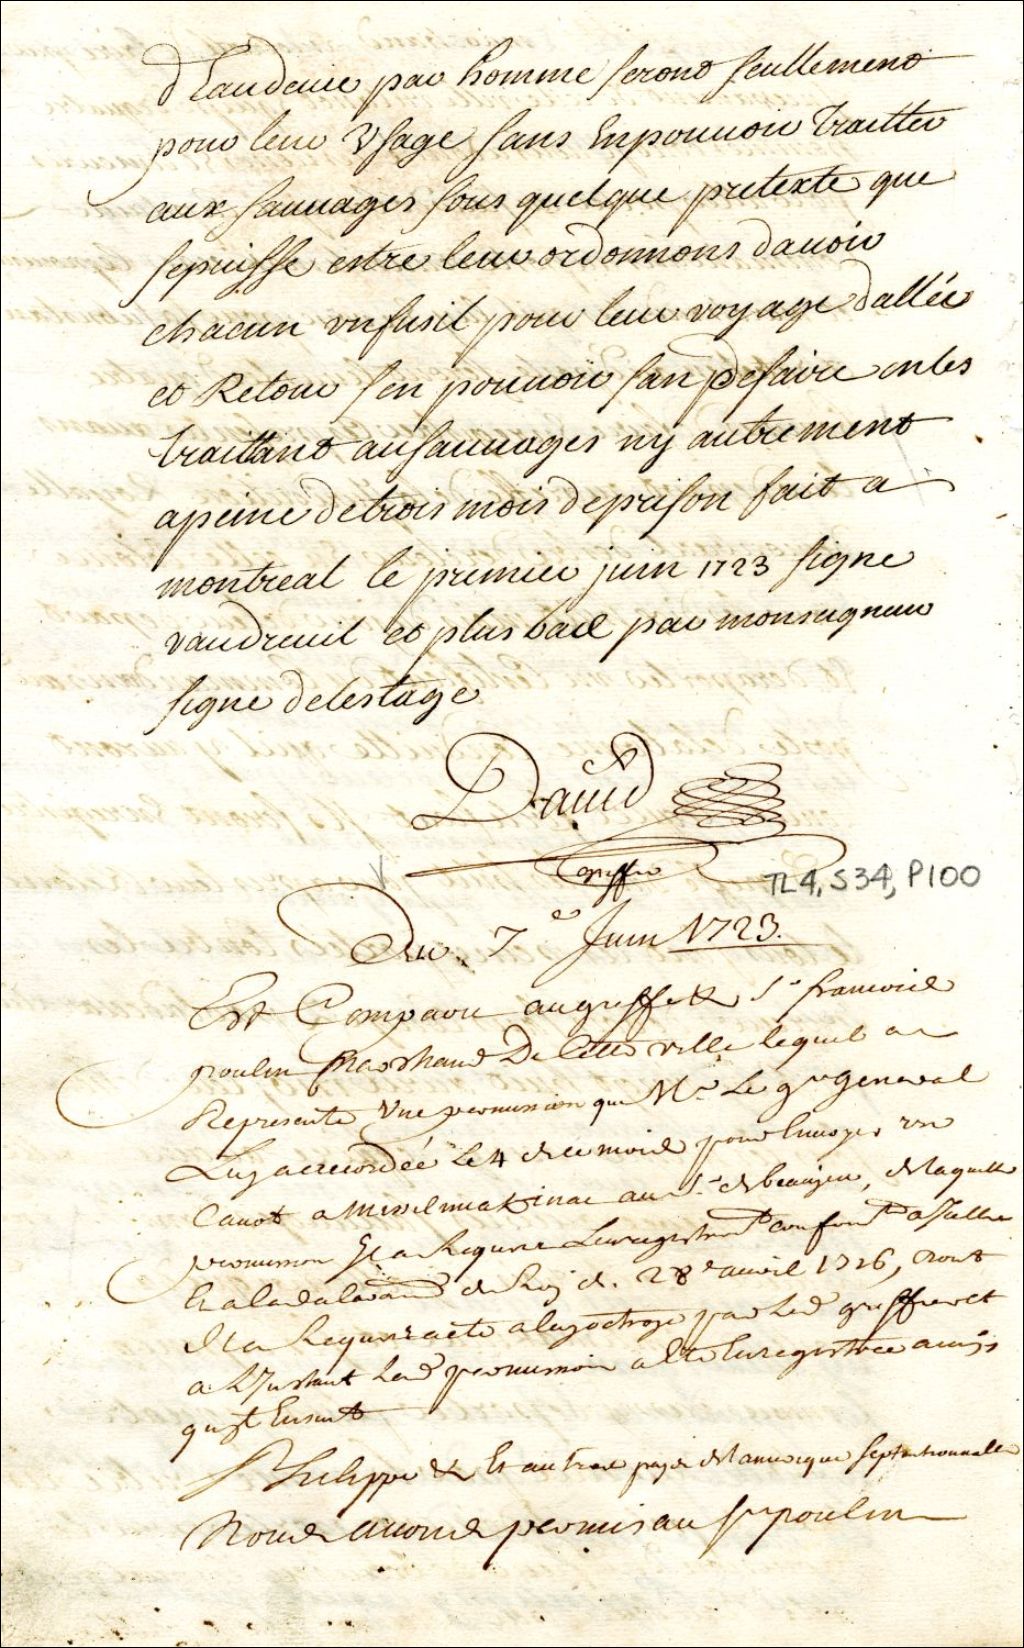 d'Eaudevie par homme seront seullement
pour leur Usage sans En pouvoir Traitter
aux sauvages sous quelque pretexte que
se puisse estre leur ordonnons d'avoir
chacun un fusil pour leur voyage d'allée
et Retour sen pouvoir san defaire en les
traittant au sauvages ny autrement
a peine de trois mois de prison fait a
montreal le premier juin 1723 signe
vaudreuil et plus bas par monseigneur
signe delestage
David
Greffier
TL4, S34, P100
Du 7e Juin 1723.
Est Comparu au greffe le Sr francois
poulin Marchand De Cette ville lequel a
Represente Une permission que Mr Le gr General
Luy a accordée Le 4 de ce mois pour Envoyer un
Canot a Missilimakinac au Sr de beaujeu, de laquelle
permission Il a Requis Lenregistremt conformt a
la declaraon du Roy du 28e avril 1726, dont
Il a Requis acte a luy octroyé par Led greffier et
a L'Instant Led permission a été Enregistrée ainsy
qu'il Ensuit
Philippe & Et autres pays de l'amerique septentrionnalle
Nous avons permis au Sr poulin